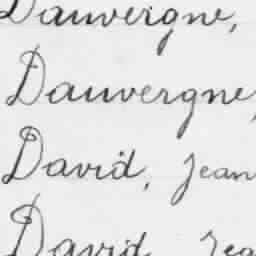 Dauvergne,
Dauvergne,
David, Jean
David Jea